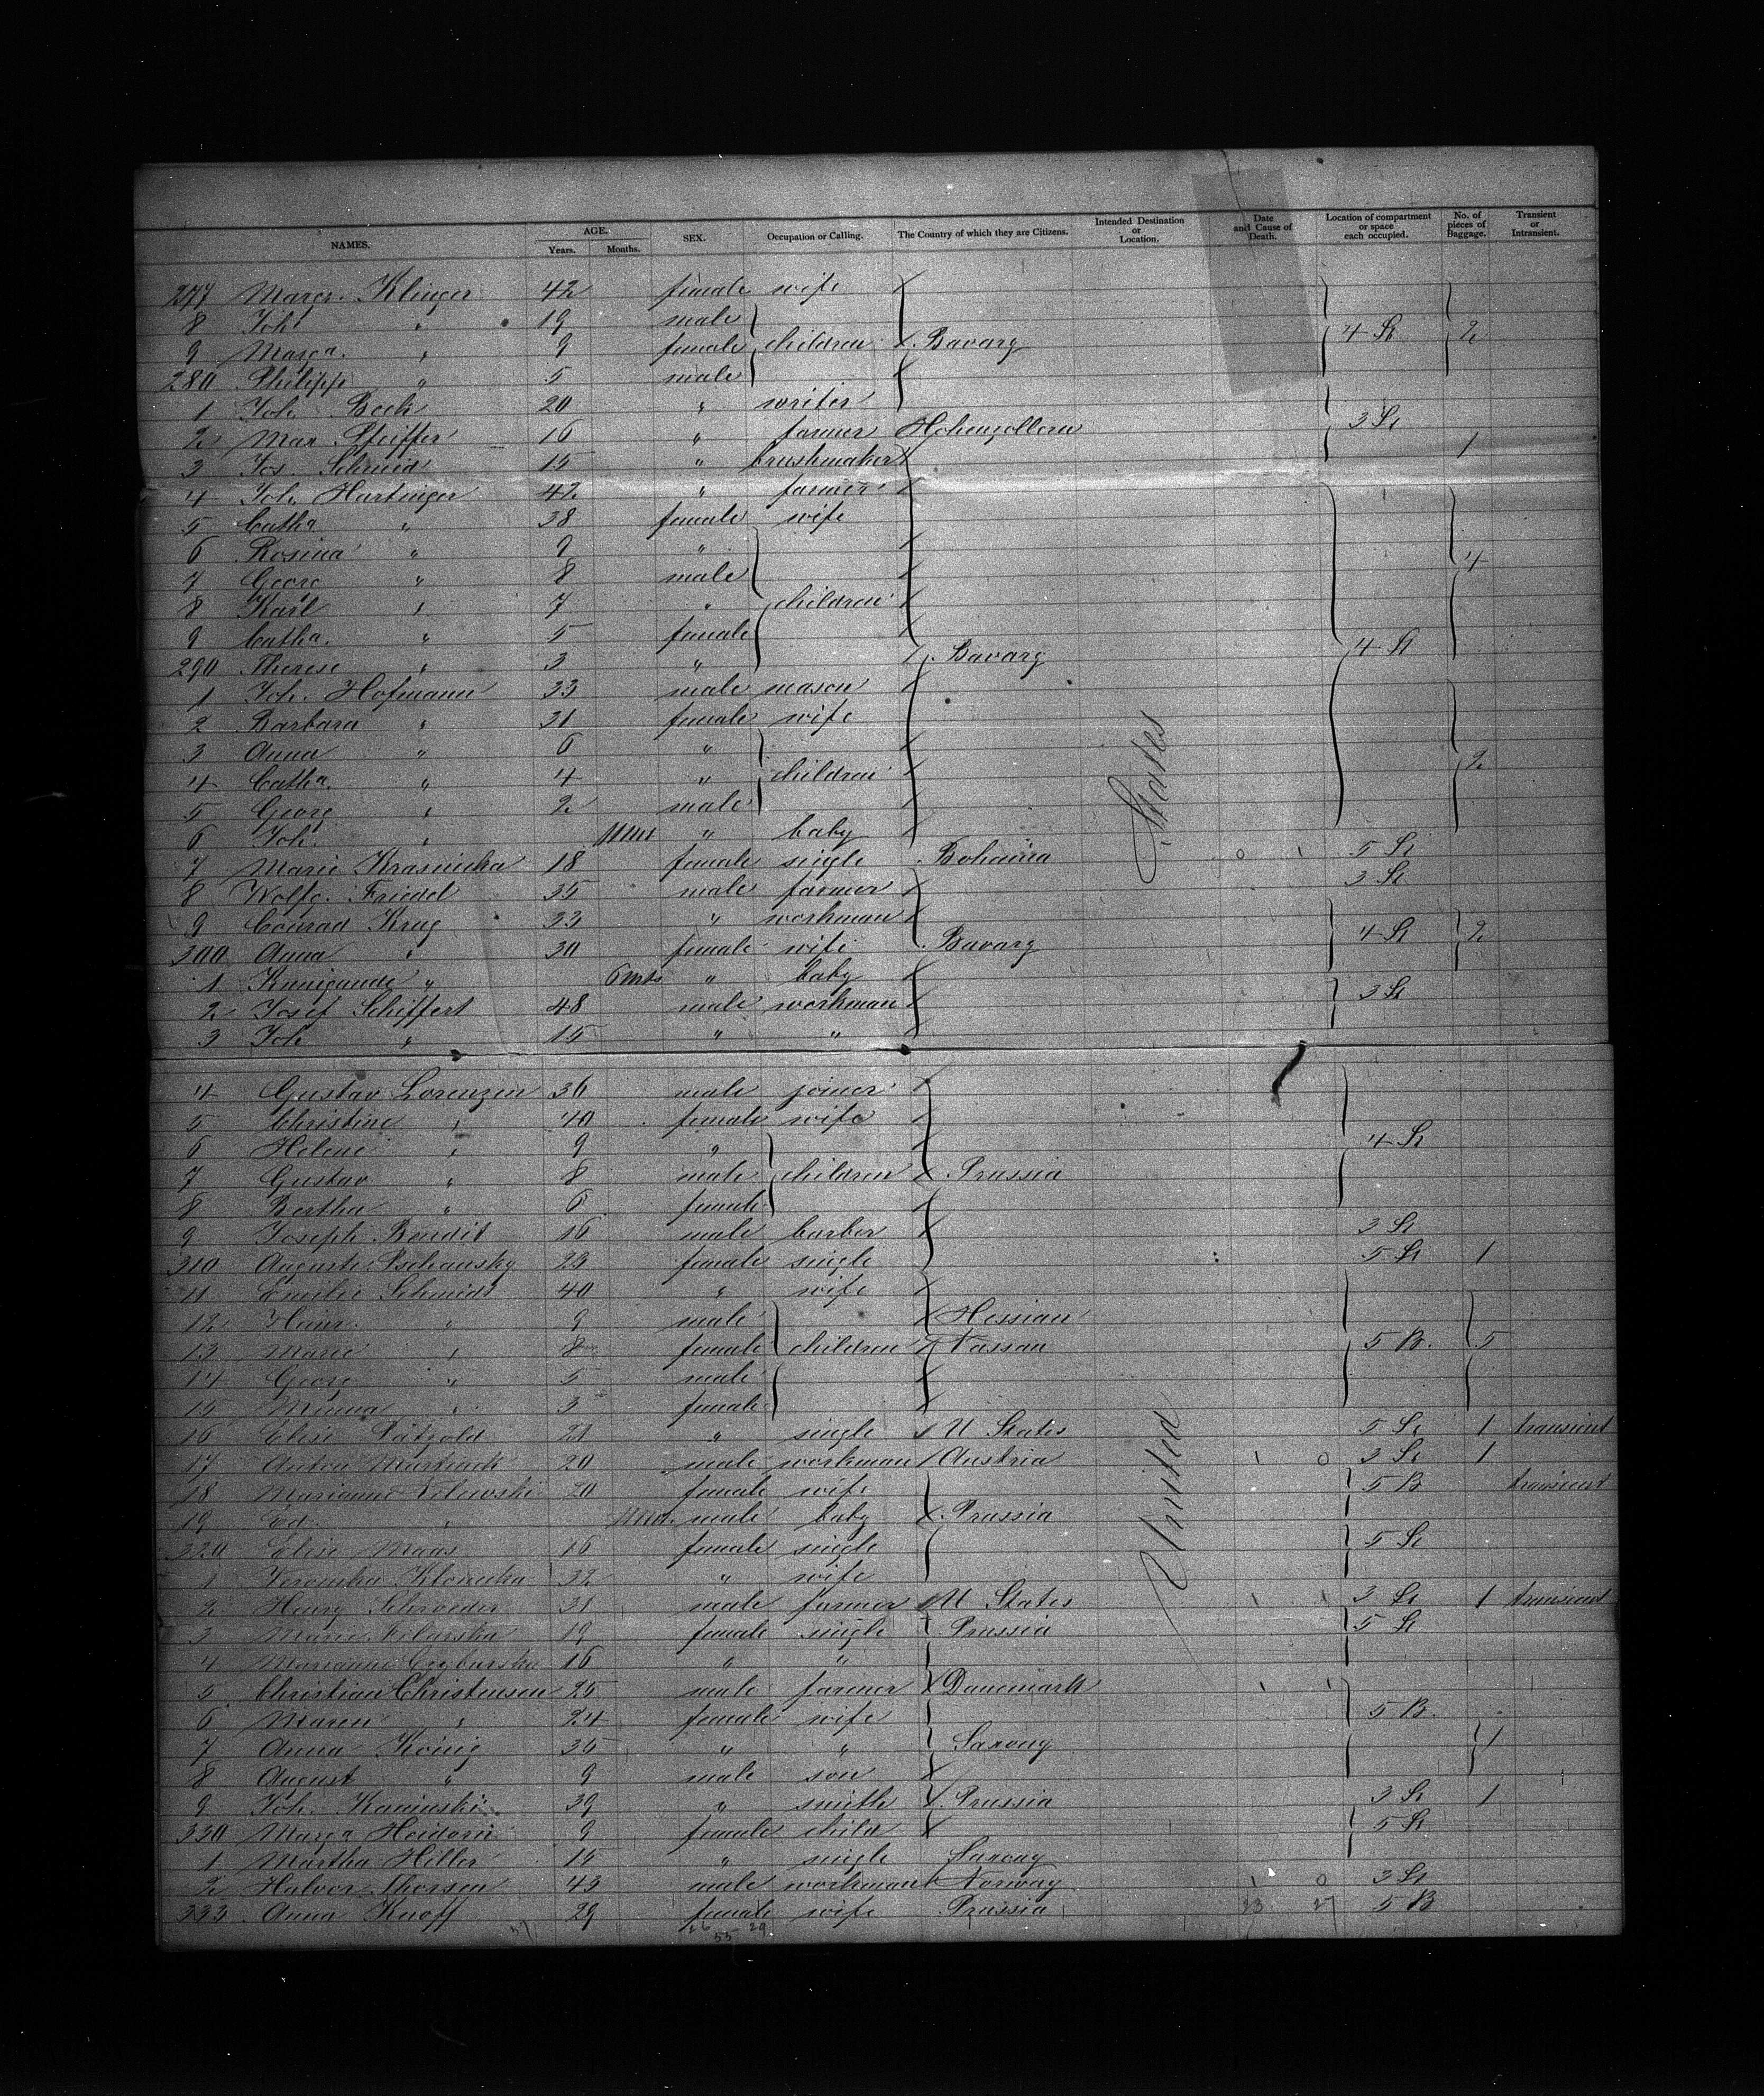 NAMES. AGE. Years. Months. SEX. Occupation or Calling. The Country of which they are Citizens. Intended Destination or Location. Date and Cause of Death. Location of compartment or space each occupied. No. of pieces of Baggage. Transient or Intransient.
277 Margr. Klinger 42 female wife
8 Joh. " 19 male
9 Marga. " 9 female children Bavarg 4 St 2
280 Philipp " 5 male
1 Joh. Beck 20 " writer
2 Max Pfeiffer 16 " farmer Hohenzollern 3 St
3 Jos. Schmid 15 " brushmaker 1
4 Joh. Hartinger 42 " farmer
5 Catha " 38 female wife
6 Rosina " 9 "
7 Georg " 8 male 4
8 Karl " 7 " children
9 Catha. " 5 female
290 Therese " 3 " Bavarg 4 St
1 Joh. Hofmann 33 male mason
2 Barbara " 31 female wife
3 Anna " 6 "
4 Catha. " 4 " children 2
5 Georg " 2 male
6 Joh. " 11 mt " baby
7 Marie Krasnicka 18 female single Bohemia 0 1 5 St
8 Wolfg. Friedel 35 male farmer 3 St
9 Conrad Krug 33 " workman
300 Anna " 30 female wife Bavarg 4 St 2
1 Kunigunde " 6 mts " baby
2 Josef Schiffert 48 male workman 3 St
3 Joh " 15 " "
4 Gustav Lorenzen 36 male joiner
5 Christine " 40 female wife
6 Helene " 9 " 4 St
7 Gustav " 8 male children Prussia
8 Bertha " 6 female
9 Joseph Bendit 16 male barber 3 St
310 Auguste Pschansky 23 female single 5 St 1
11 Emilie Schmidt 40 " wife
12 Heinr. " 9 male Hessian
13 Marie " 8 female children Nassau 5 B. 5
14 Georg " 5 male
15 Minna " 3 female
16 Elise Pätzold 21 " single U States 5 St 1 transient
17 Anton Martinek 20 male workman Austria 1 0 3 St 1
18 Marianne 20 female wife 5 B transient
19 Ed. " 11 mt. male baby Prussia
320 Elise Maas 16 female single 5 St
1 Veronika 32 " wife
2 Henry Schroeder 31 male farmer U States 1 1 3 St 1 transient
3 Marie 19 female single Prussia 5 St
4 Marianne 16 " "
5 Christian Christensen 25 male farmer Danemark 1 1
6 Maren " 24 female wife 5 B.
7 Anna König 35 " " Saxony 1
8 August " 9 male son
9 Joh. Kaminski 39 " smith Prussia 3 St 1
330 Marga Heidorn 9 female child 5 St
1 Martha Heller 15 " single Saxony
2 Halvor Thorsen 43 male workman Norway 1 0 3 St
333 Anna Knoff 29 female wife Prussia 23 27 5 B
26 29
55
United States